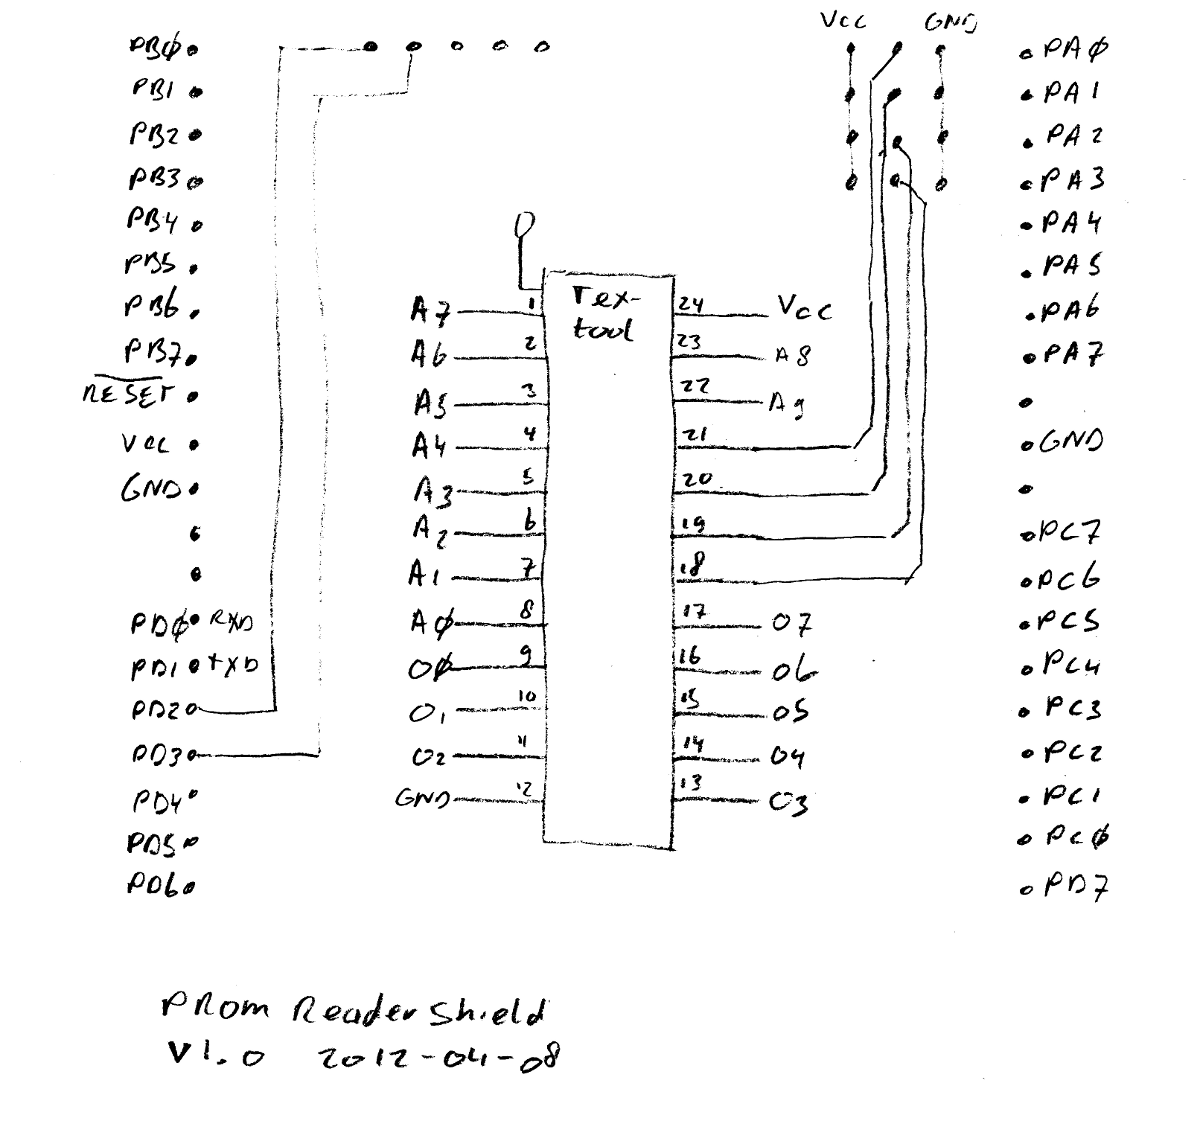 Vcc GND
PBØ
PB1
PB2
PB3
PB4
PB5
PB6
PB7
RESET
Vcc
GND
PDØ RXD
PD1 TXD
PD2
PD3
PD4
PD5
PD6
Tex-
tool
A7 1
A6 2
A5 3
A4 4
A3 5
A2 6
A1 7
AØ 8
OØ 9
O1 10
O2 11
GND 12
24 Vcc
23 A8
22 A9
21
20
19
18
17 O7
16 O6
15 O5
14 O4
13 O3
PAØ
PA1
PA2
PA3
PA4
PA5
PA6
PA7
GND
PC7
PC6
PC5
PC4
PC3
PC2
PC1
PCØ
PD7
PROM Reader Shield
V1.0 2012-04-08